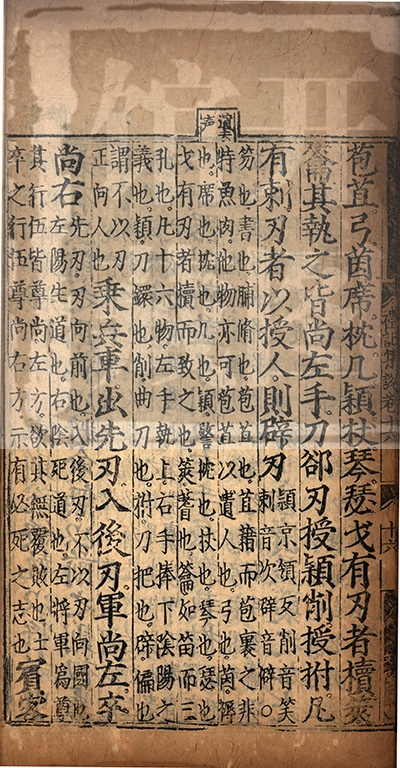 苞苴弓茵席枕几穎杖琴瑟戈有刃者櫝筴
籥其執之皆尚左手刀卻刃授穎削授拊凡
有刺刃者以授人則辟刃
穎京領反削音笑
刺音次辟音僻○
笏也書也脯脩也苞苴也苴藉而苞裹之非
特魚肉他物亦可苞苴以遺人也弓也茵褥
也席也枕也几也穎警枕也杖也琴也瑟也
戈有刃者櫝而致之也筴蓍也籥如笛而三
孔也凡十六物左手執上右手捧下陰陽之
義也穎刀鐶也削曲刀也拊刀把也辟偏也
謂不以刃
正向人也
乘兵車出先刃入後刃軍尚左卒
尚右
先刃刃向前也入後刃不以刃向國也
左陽生道也右陰死道也左將軍爲尊
其行伍皆尊尚左方欲其無覆敗也士
卒之行伍尊尚右方示有必死之志也
賓客